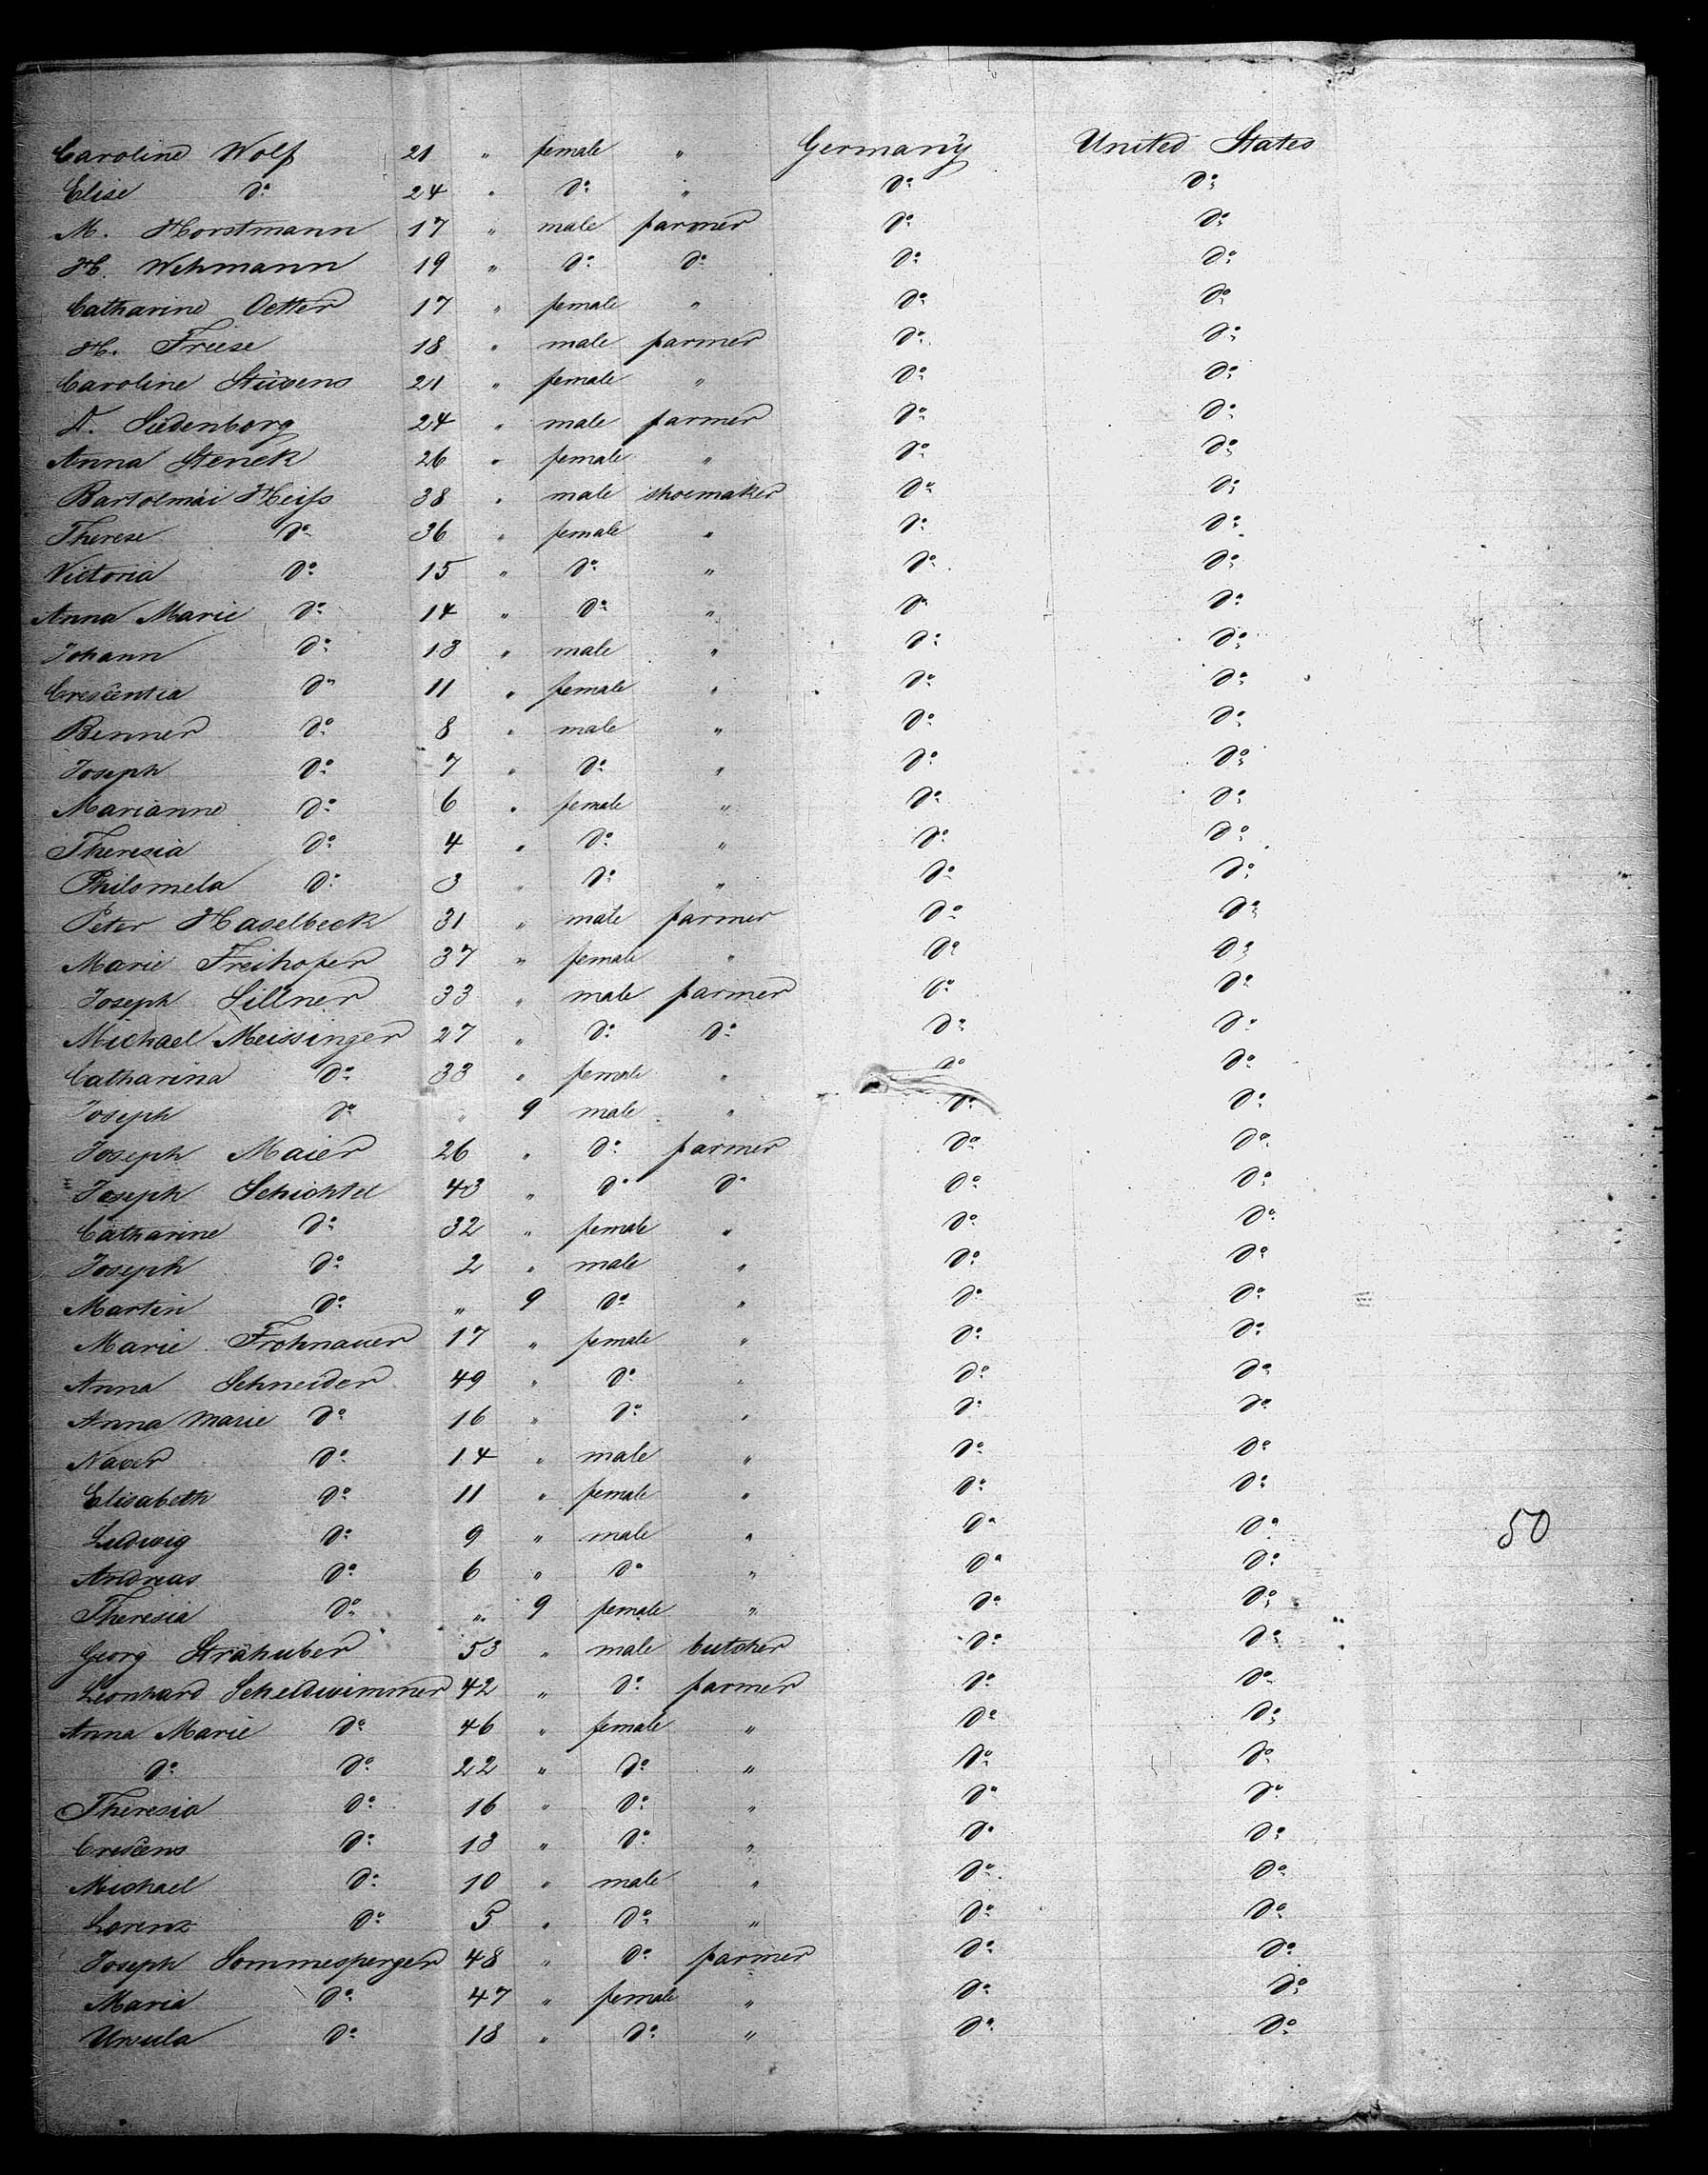 Caroline Wolf 21 " female " Germany United States
Elise do 24 " do " do do
M. Horstmann 17 " male farmer do do
H. Wehmann 19 " do do do do
Catharine Oetter 17 " female " do do
H. Friese 18 " male farmer do do
Caroline Stüvens 21 " female " do do
D. Siedenborg 24 " male farmer do do
Anna Stenek 26 " female " do do
Bartolmäi Heiss 38 " male shoemaker do do
Therese do 36 " female " do do
Victoria do 15 " do " do do
Anna Marie do 14 " do " do do
Johann do 13 " male " do do
Crescentia do 11 " female " do do
Benner do 8 " male " do do
Joseph do 7 " do " do do
Marianne do 6 " female " do do
Theresia do 4 " do " do do
Philomela do 3 " do " do do
Peter Haselbeck 31 " male farmer do do
Marie Freihofer 37 " female " do do
Joseph Sillner 33 " male farmer do do
Michael Meissinger 27 " do do do do
Catharina do 33 " female " do do
Joseph do " 9 male " do do
Joseph Maier 26 " do farmer do do
Joseph Schichtel 43 " do do do do
Catharine do 32 " female " do do
Joseph do 2 " male " do do
Martin do " 9 do " do do
Marie Frohnauer 17 " female " do do
Anna Schneider 49 " do " do do
Anna Marie do 16 " do " do do
Xaver do 14 " male " do do
Elisabeth do 11 " female " do do
Ludwig do 9 " male " do do 50
Andreas do 6 " do " do do
Theresia do " 9 female " do do
Georg Strähuber 53 " male butcher do do
Leonhard Scheidwimmer 42 " do farmer do do
Anna Marie do 46 " female " do do
do do 22 " do " do do
Theresia do 16 " do " do do
Crescens do 13 " do " do do
Michael do 10 " male " do do
Lorenz do 5 " do " do do
Joseph Sommesperger 48 " do farmer do do
Maria do 47 " female " do do
Ursula do 18 " do " do do